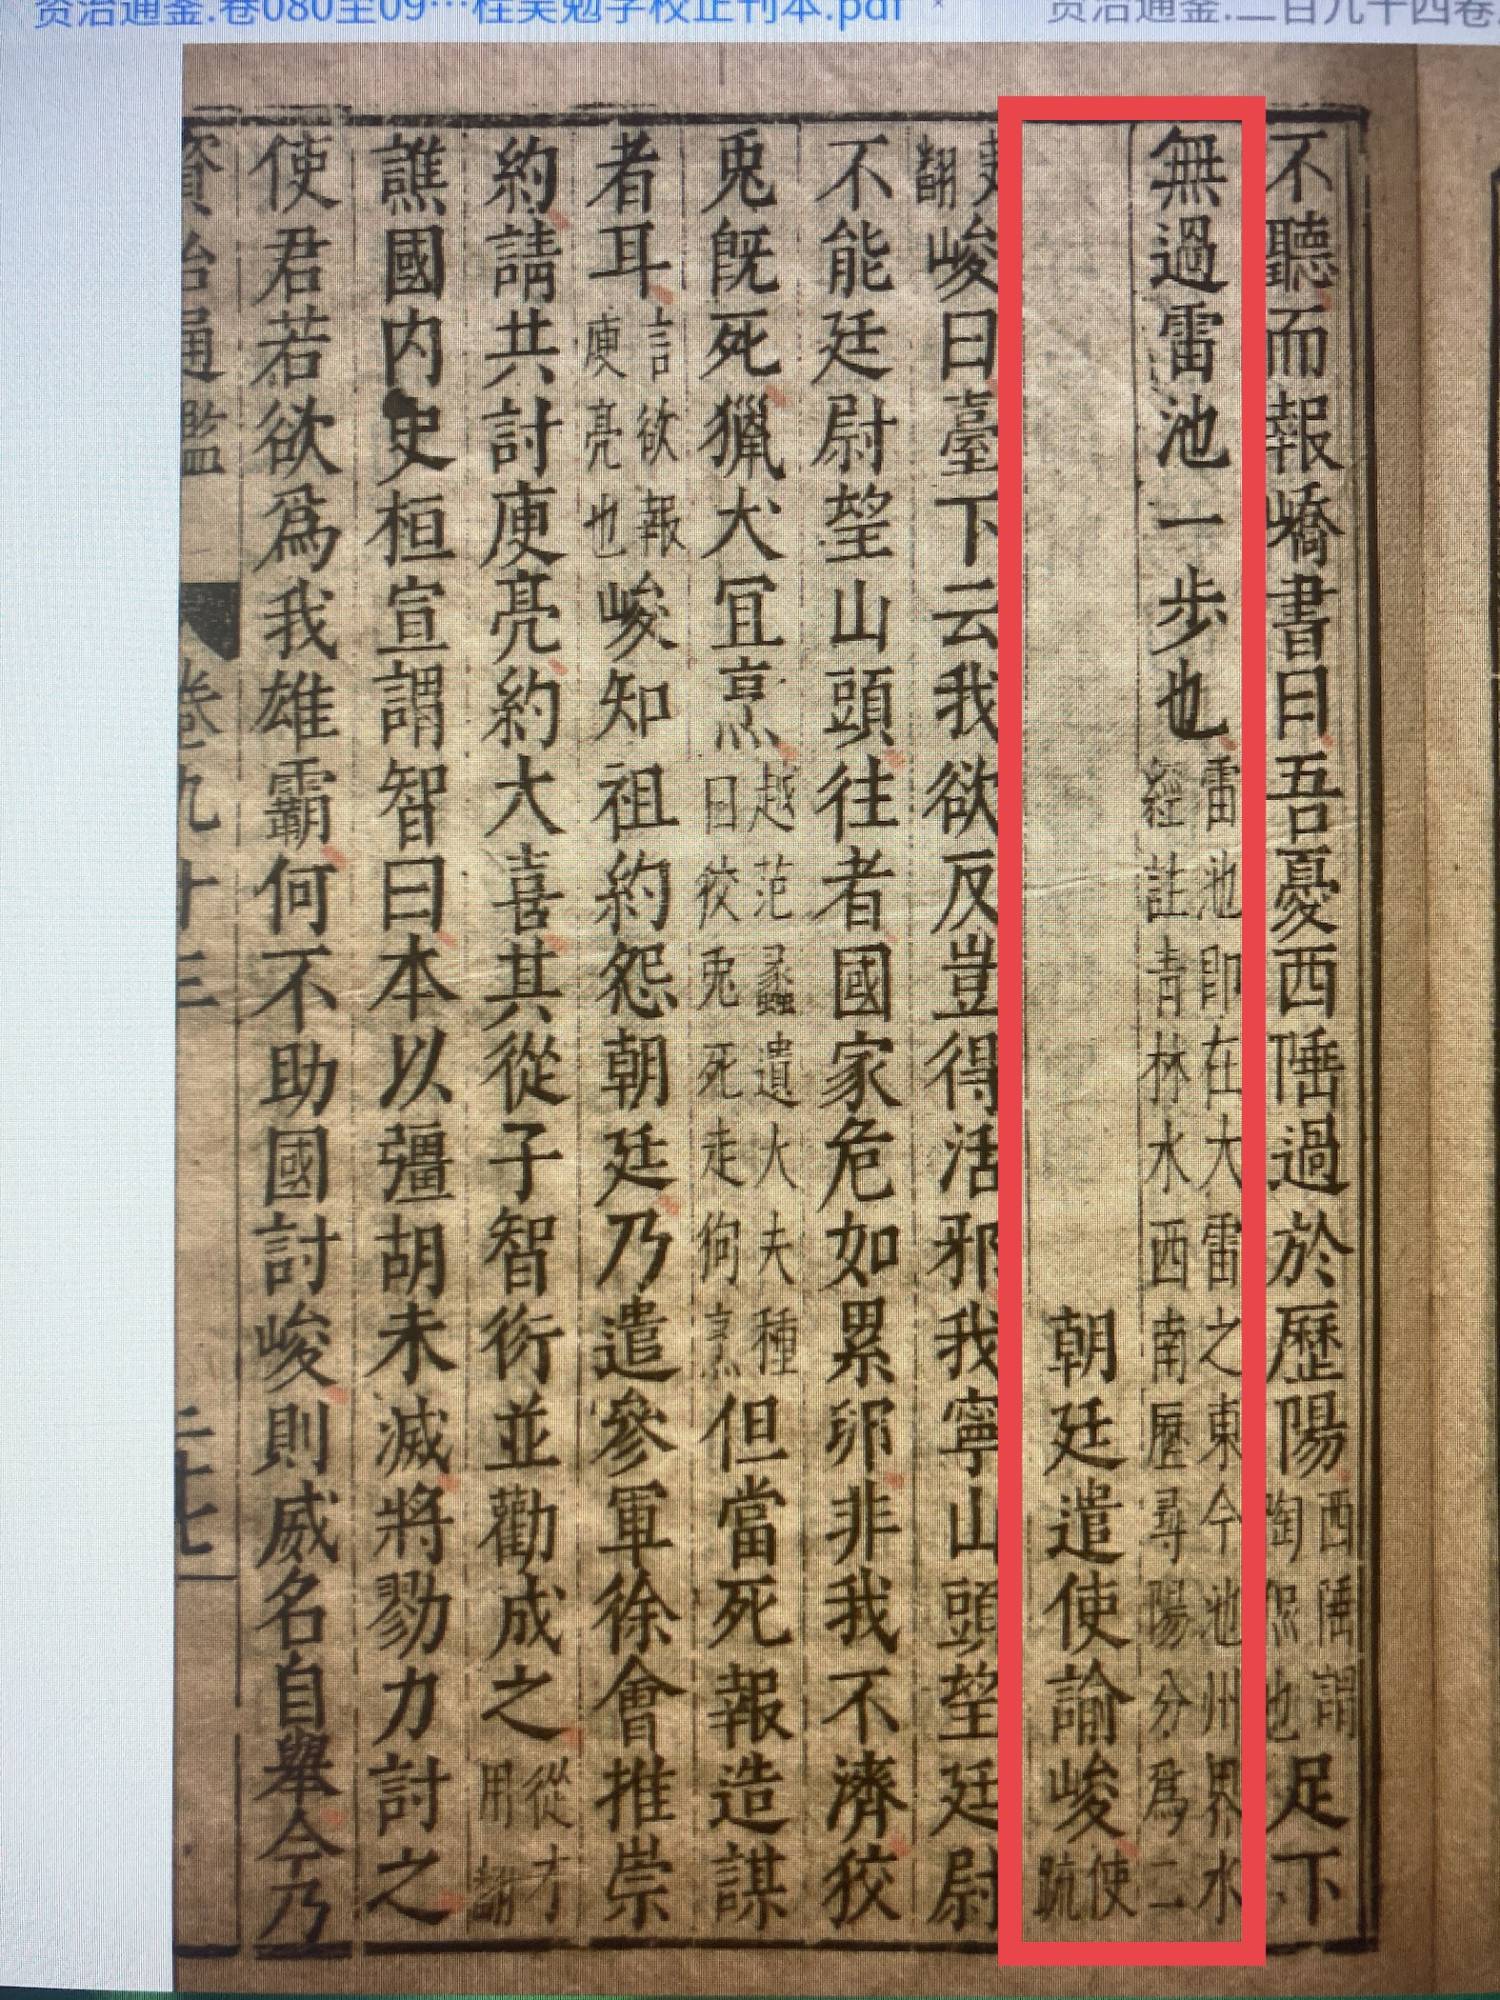 资治通鉴.卷080至09…桂吴勉学校正刊本.pdf
资治通鉴.二百九十四卷
不聽而報嶠書曰吾憂西陲過於歷陽西陲謂陶侃也足下
無過雷池一步也雷池即在大雷之東今池州界水經註青林水西南歷尋陽分爲二
朝廷遣使諭峻使疏
吏翻峻曰臺下云我欲反豈得活邪我寧山頭望廷尉
不能廷尉望山頭往者國家危如累卵非我不濟狡
兎旣死獵犬宜烹越范蠡遺大夫種曰狡兎死走狗烹但當死報造謀
者耳言欲報庾亮也峻知祖約怨朝廷乃遣參軍徐會推崇
約請共討庾亮約大喜其從子智衍並勸成之從才用翻
譙國内史桓宣謂智曰本以彊胡未滅將勠力討之
使君若欲爲我雄霸何不助國討峻則威名自舉今乃
資治通鑑 卷九十三 二十七